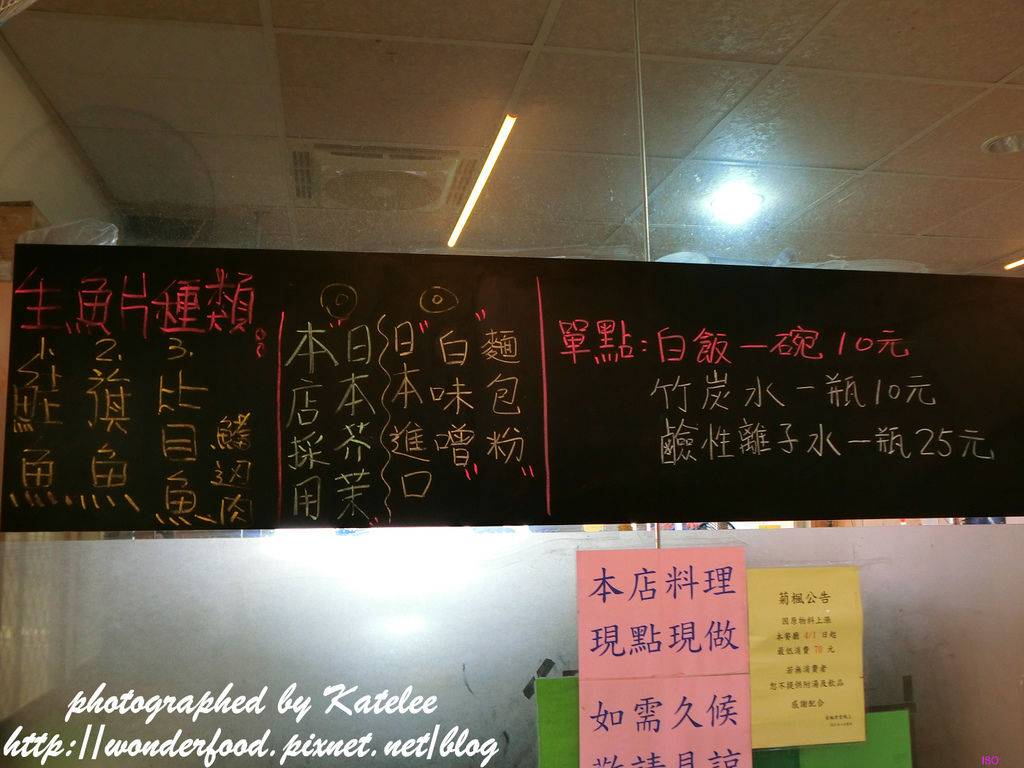 生魚片種類:
1.鮭魚
2.旗魚
3.比目魚
鰭邊肉
本店採用
"日本芥茉"
日本進口
"白味噌"
"麵包粉"
單點:白飯一碗10元
竹炭水一瓶10元
鹼性離子水一瓶25元
本店料理
現點現做
如需久候
敬請見諒
菊楓公告
因原物料上漲
本餐廳 4/1 日起
最低消費 70 元
若無消費者
恕不提供附湯及飲品
感謝配合
photographed by Katelee
http://wonderfood.pixnet.net/blog
ISO